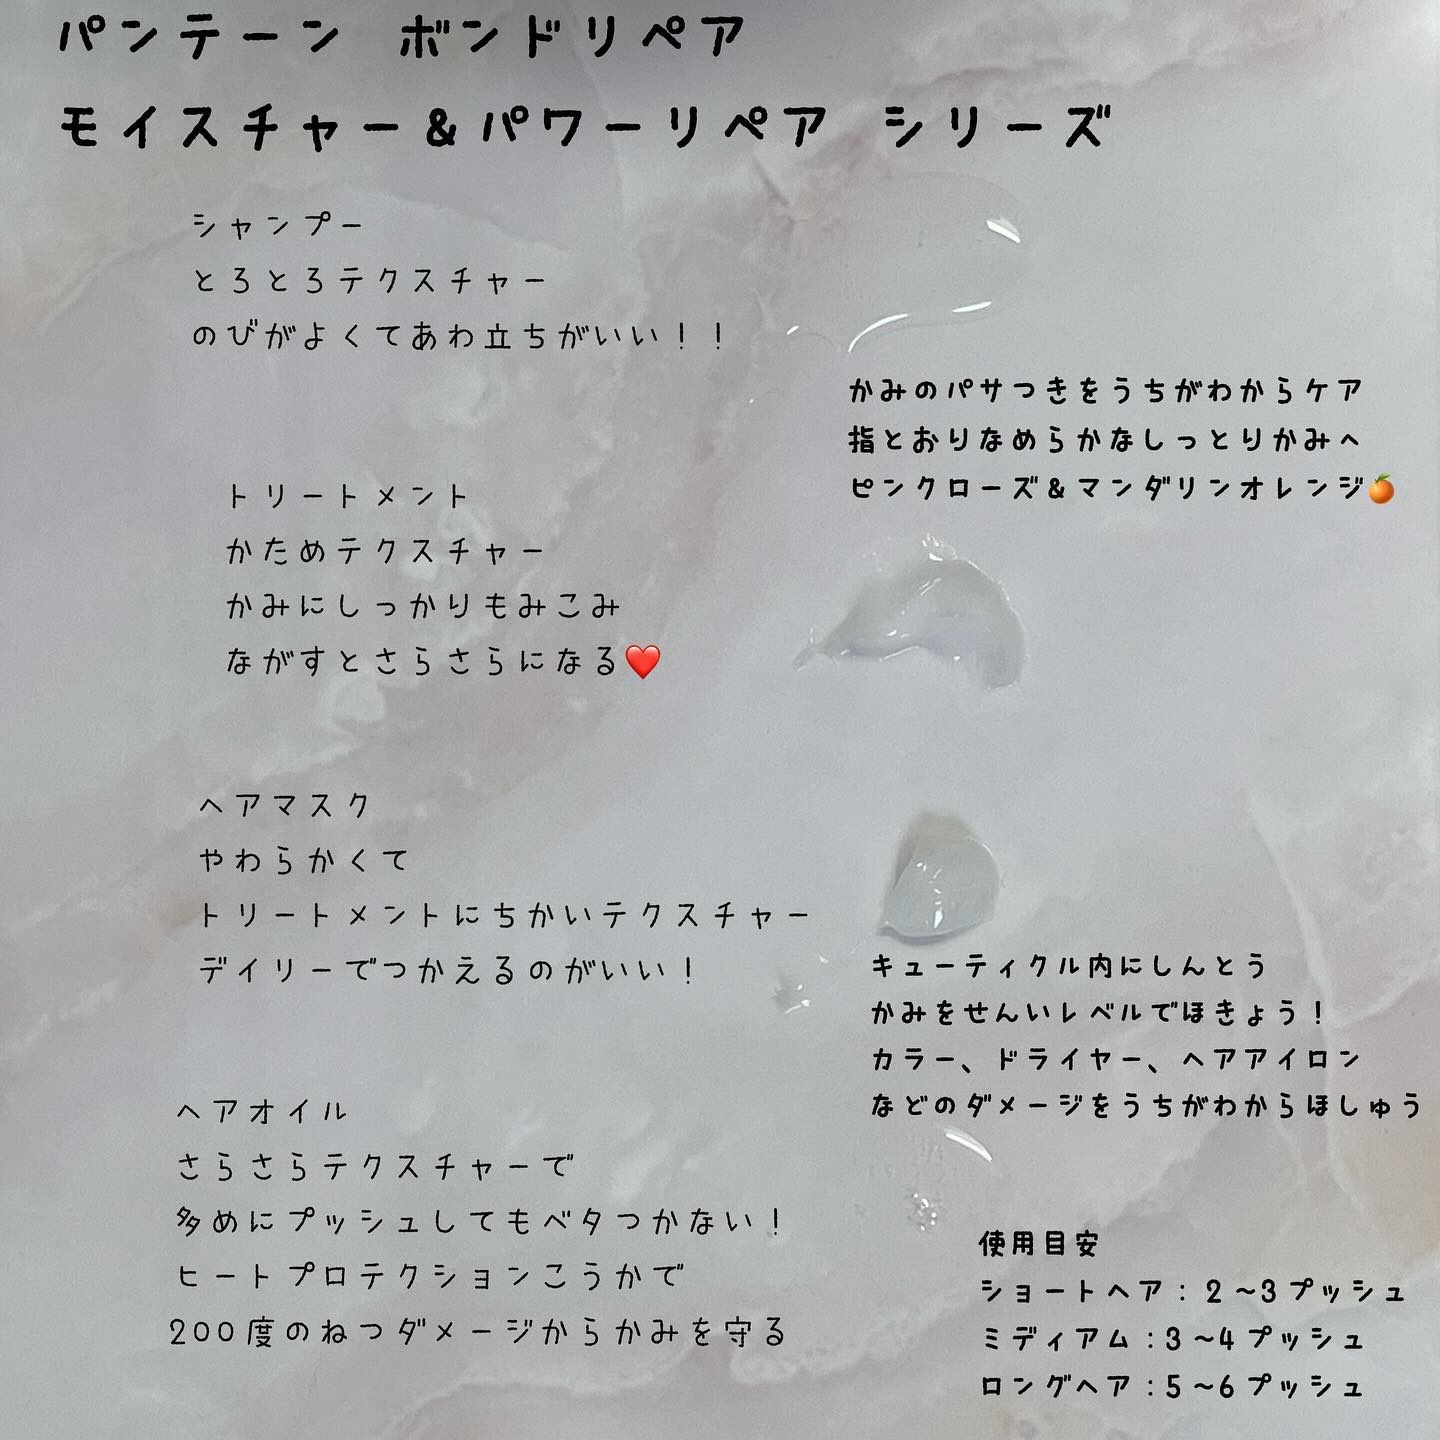 パンテーン ボンドリペア
モイスチャー&パワーリペア シリーズ
シャンプー
とろとろテクスチャー
のびがよくてあわ立ちがいい！！
かみのパサつきをうちがわからケア
指とおりなめらかなしっとりかみへ
ピンクローズ&マンダリンオレンジ🍊
トリートメント
かためテクスチャー
かみにしっかりもみこみ
ながすとさらさらになる❤️
ヘアマスク
やわらかくて
トリートメントにちかいテクスチャー
デイリーでつかえるのがいい！
キューティクル内にしんとう
かみをせんいレベルでほきょう！
カラー、ドライヤー、ヘアアイロン
などのダメージをうちがわからほしゅう
ヘアオイル
さらさらテクスチャーで
多めにプッシュしてもベタつかない！
ヒートプロテクションこうかで
200度のねつダメージからかみを守る
使用目安
ショートヘア：2〜3プッシュ
ミディアム：3〜4プッシュ
ロングヘア：5〜6プッシュ